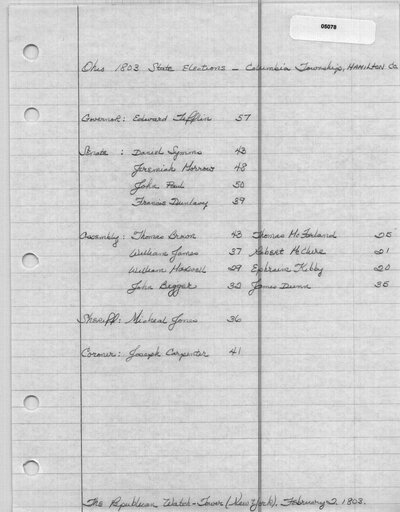 05078
Ohio 1803 State Elections - Columbia Township, HAMILTON Co.
Governor: Edward Tiffin 57
Senate : Daniel Symms 43
Jeremiah Morrow 48
John Paul 50
Francis Dunlavy 39
Assembly: Thomas Brown 43 Thomas McFarland 25
William James 37 Robert McClure 21
William Maxwell 29 Ephraim Kibby 20
John Bigger 32 James Dunn 35
Sheriff: Micheal Jones 36
Coroner: Joseph Carpenter 41
The Republican Watch-Tower (New York). February 2 1803.